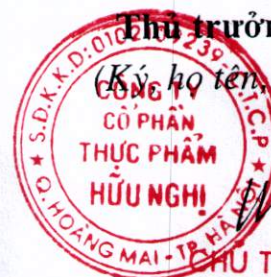 Thủ trưởn
(Ký, họ tên,
S.D.K.K.D:010210
239
T.C.P
CÔNG TY
CỔ PHẦN
THỰC PHẨM
HỮU NGHỊ
Q. HOÀNG MAI - TP. HÀ NỘI
CHỦ T